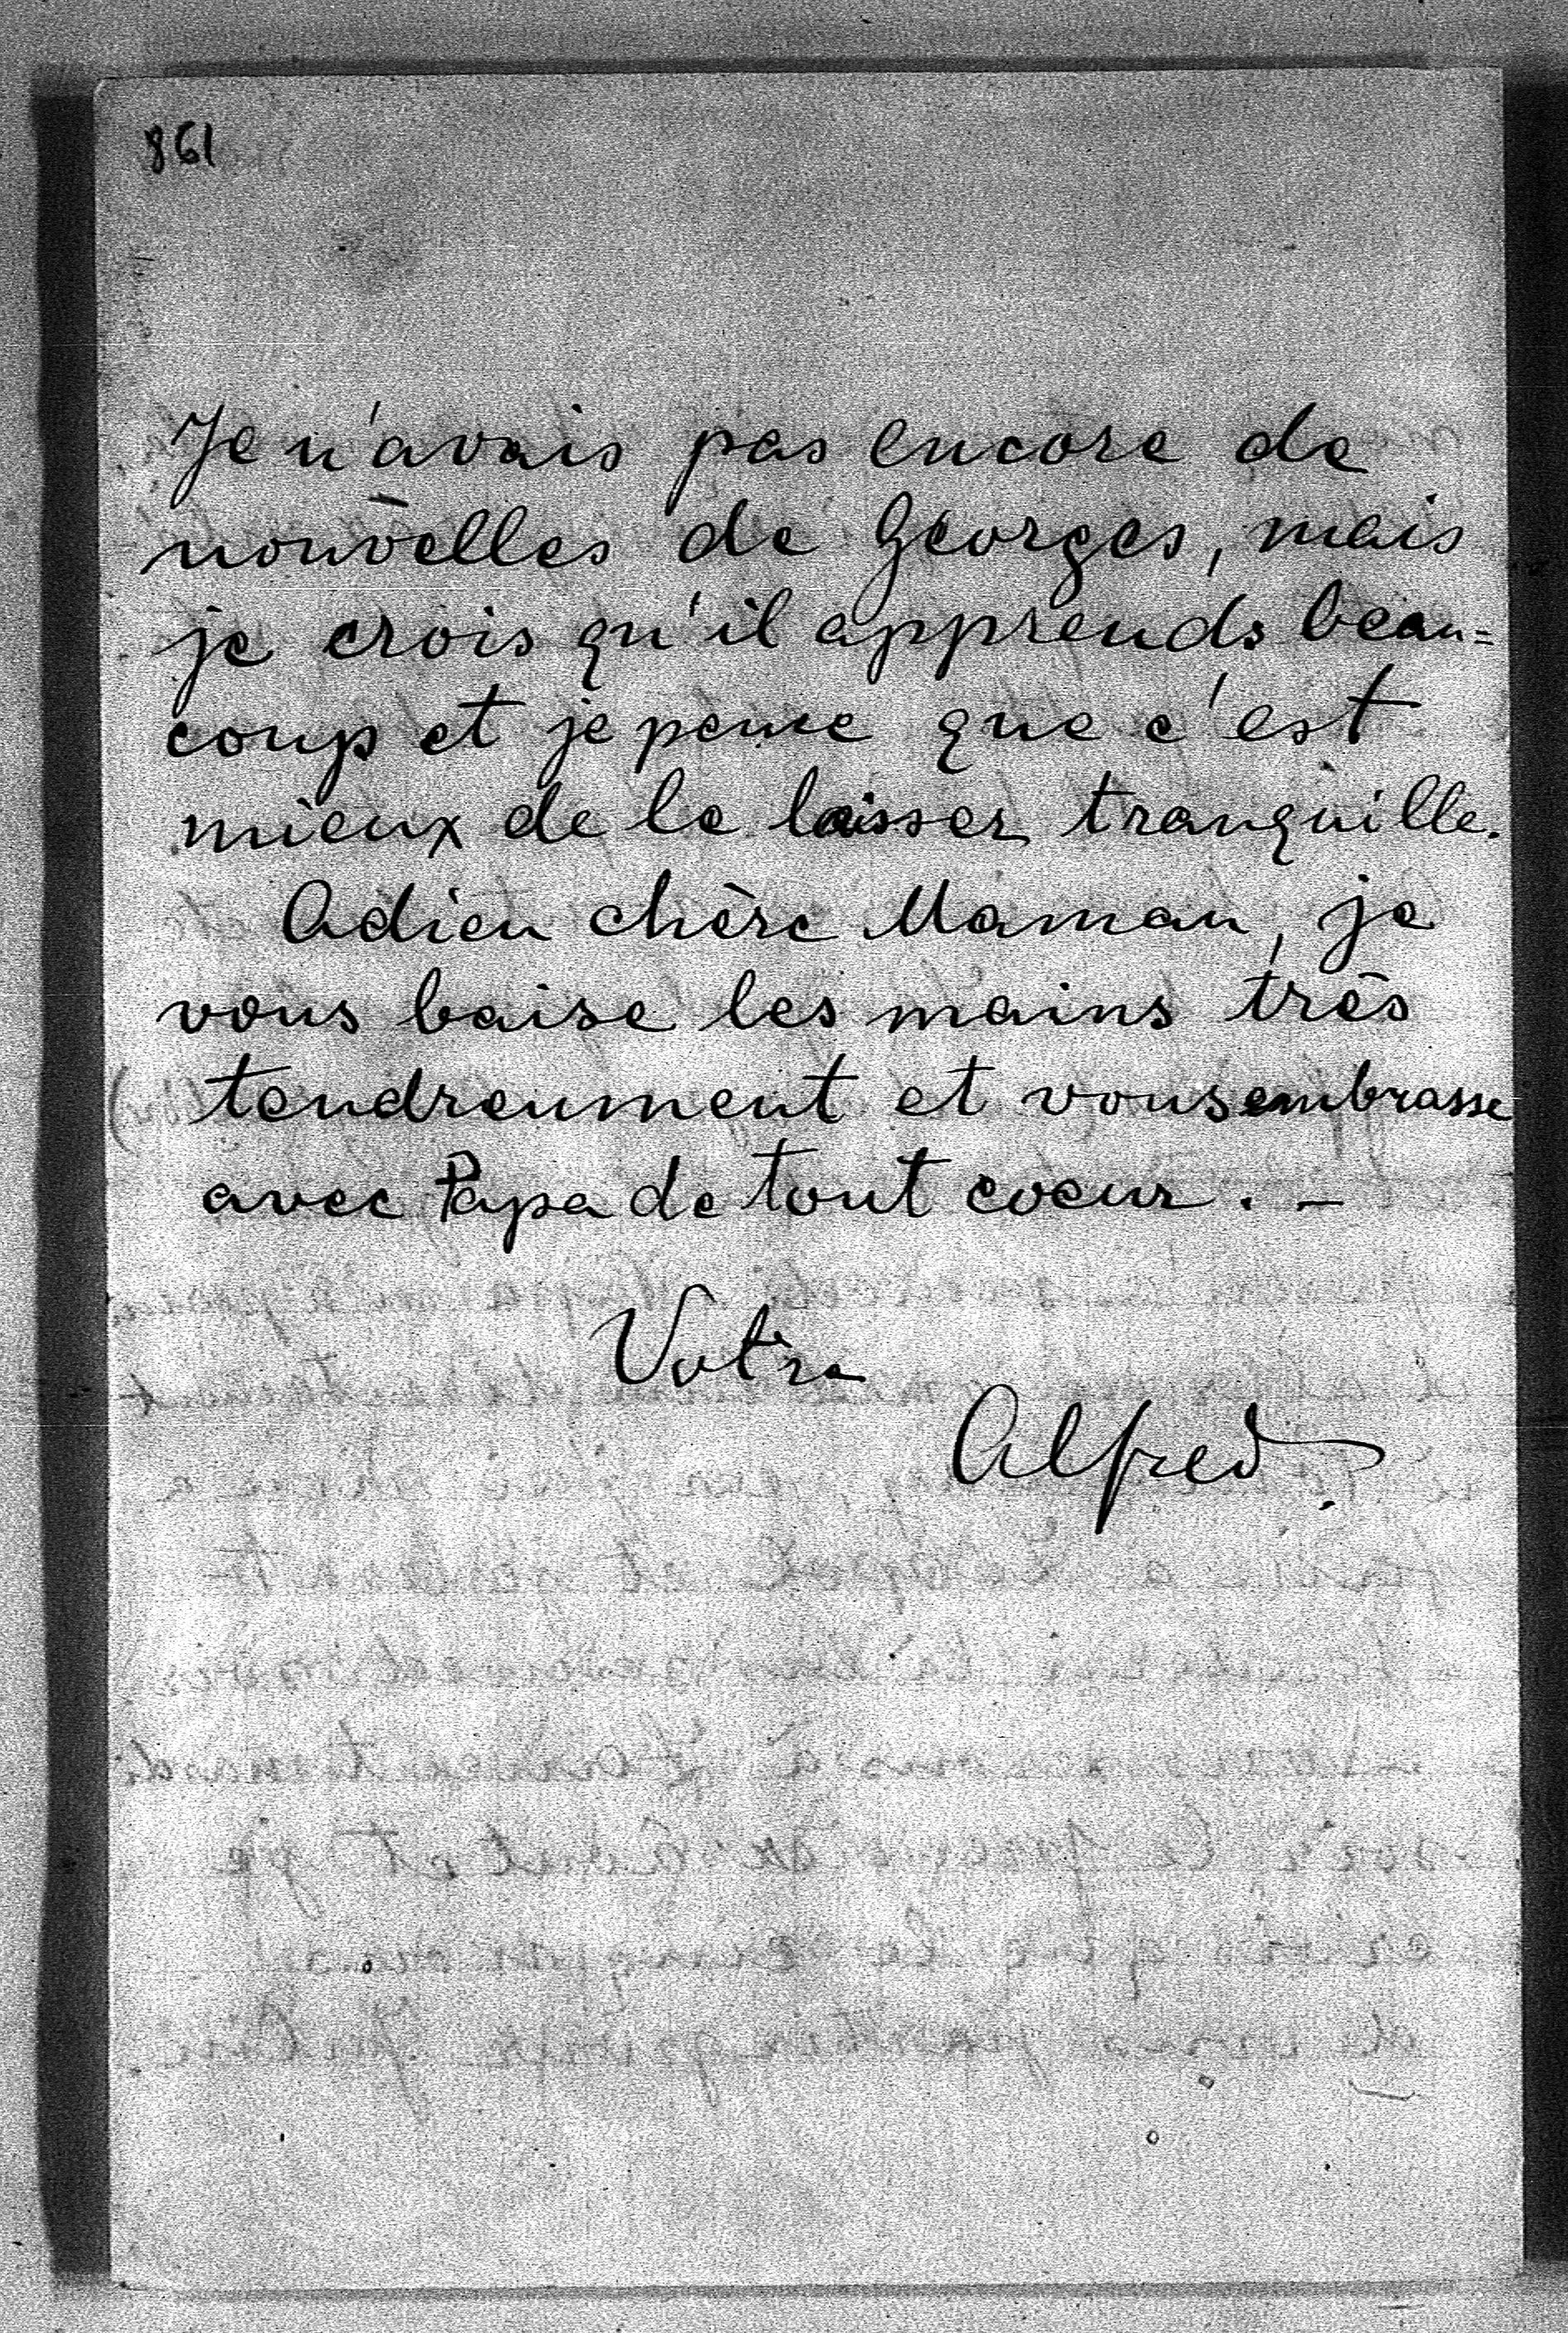 861
Je n'avais pas encore de
nouvelles de Georges, mais
je crois qu'il apprends beau=
coup et je pense que c'est
mieux de le laisser tranquille.
Adieu chère Maman, je
vous baise les mains très
tendreument et vous embrasse
avec Papa de tout coeur. –
Votre
Alfred.